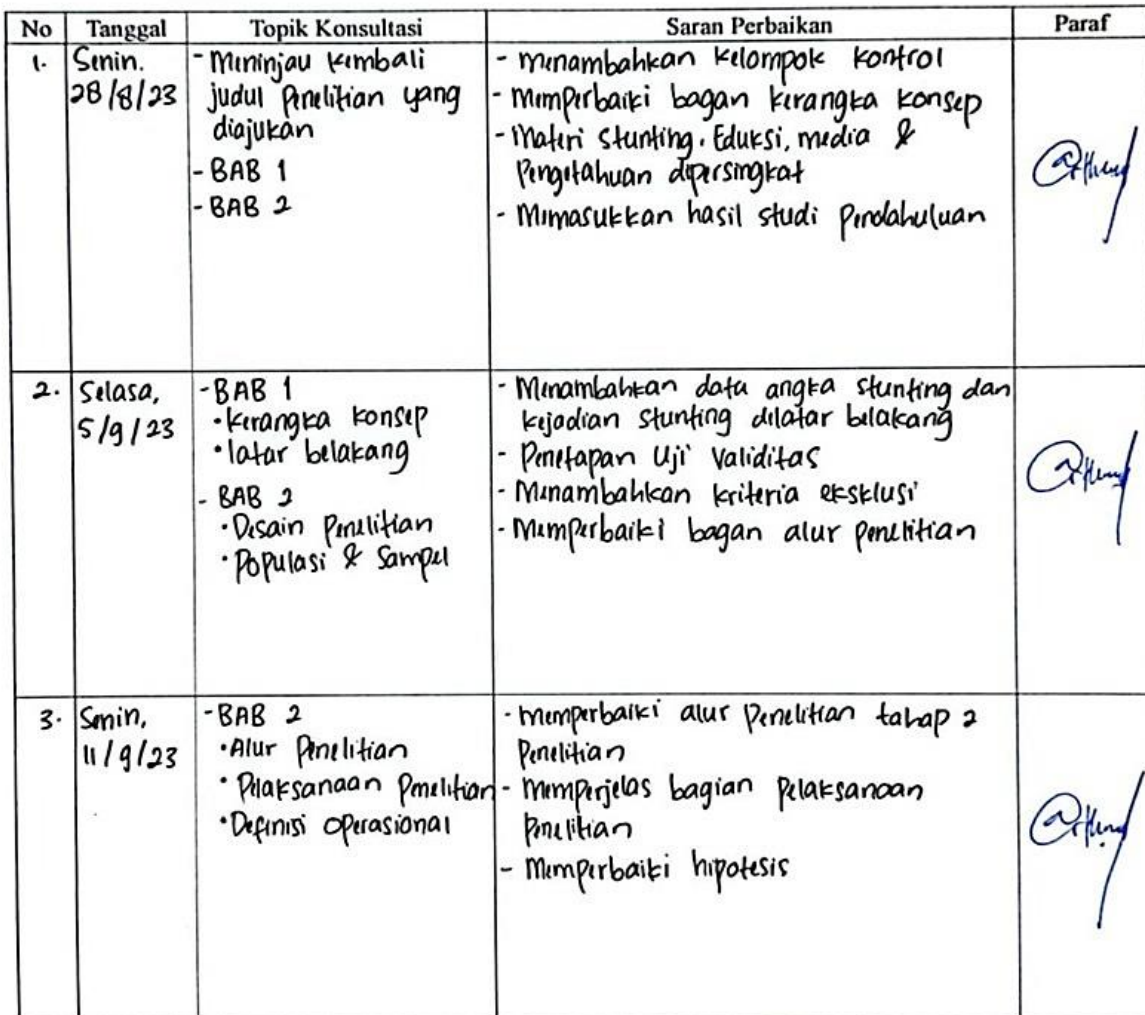 No Tanggal Topik Konsultasi Saran Perbaikan Paraf
1. Senin, 28/8/23
- Meninjau kembali
judul Penelitian yang
diajukan
- BAB 1
- BAB 2
- Menambahkan kelompok kontrol
- Memperbaiki bagan kerangka konsep
- Materi stunting, Eduksi, media &
Pengetahuan dipersingkat
- Memasukkan hasil studi Pendahuluan
2. Selasa, 5/9/23
- BAB 1
• kerangka konsep
• latar belakang
- BAB 2
• Desain Penelitian
• Populasi & Sampel
- Menambahkan data angka stunting dan
kejadian stunting dilatar belakang
- Penetapan Uji Validitas
- Menambahkan kriteria eksklusi
- Memperbaiki bagan alur penelitian
3. Senin, 11/9/23
- BAB 2
• Alur Penelitian
• Pelaksanaan Penelitian
• Definisi Operasional
- Memperbaiki alur Penelitian tahap 2
Penelitian
- Memperjelas bagian Pelaksanaan
Penelitian
- Memperbaiki hipotesis